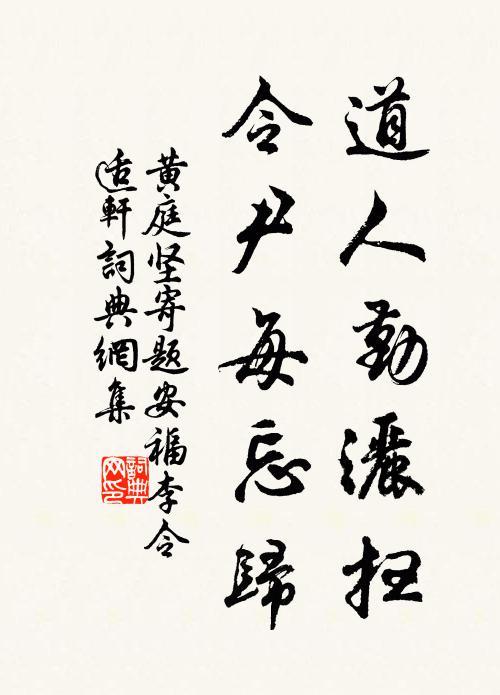 道人勤灑扫
令尹每忘歸
黄庭坚寄題安福李令
适軒詞典網集
詞典
网印